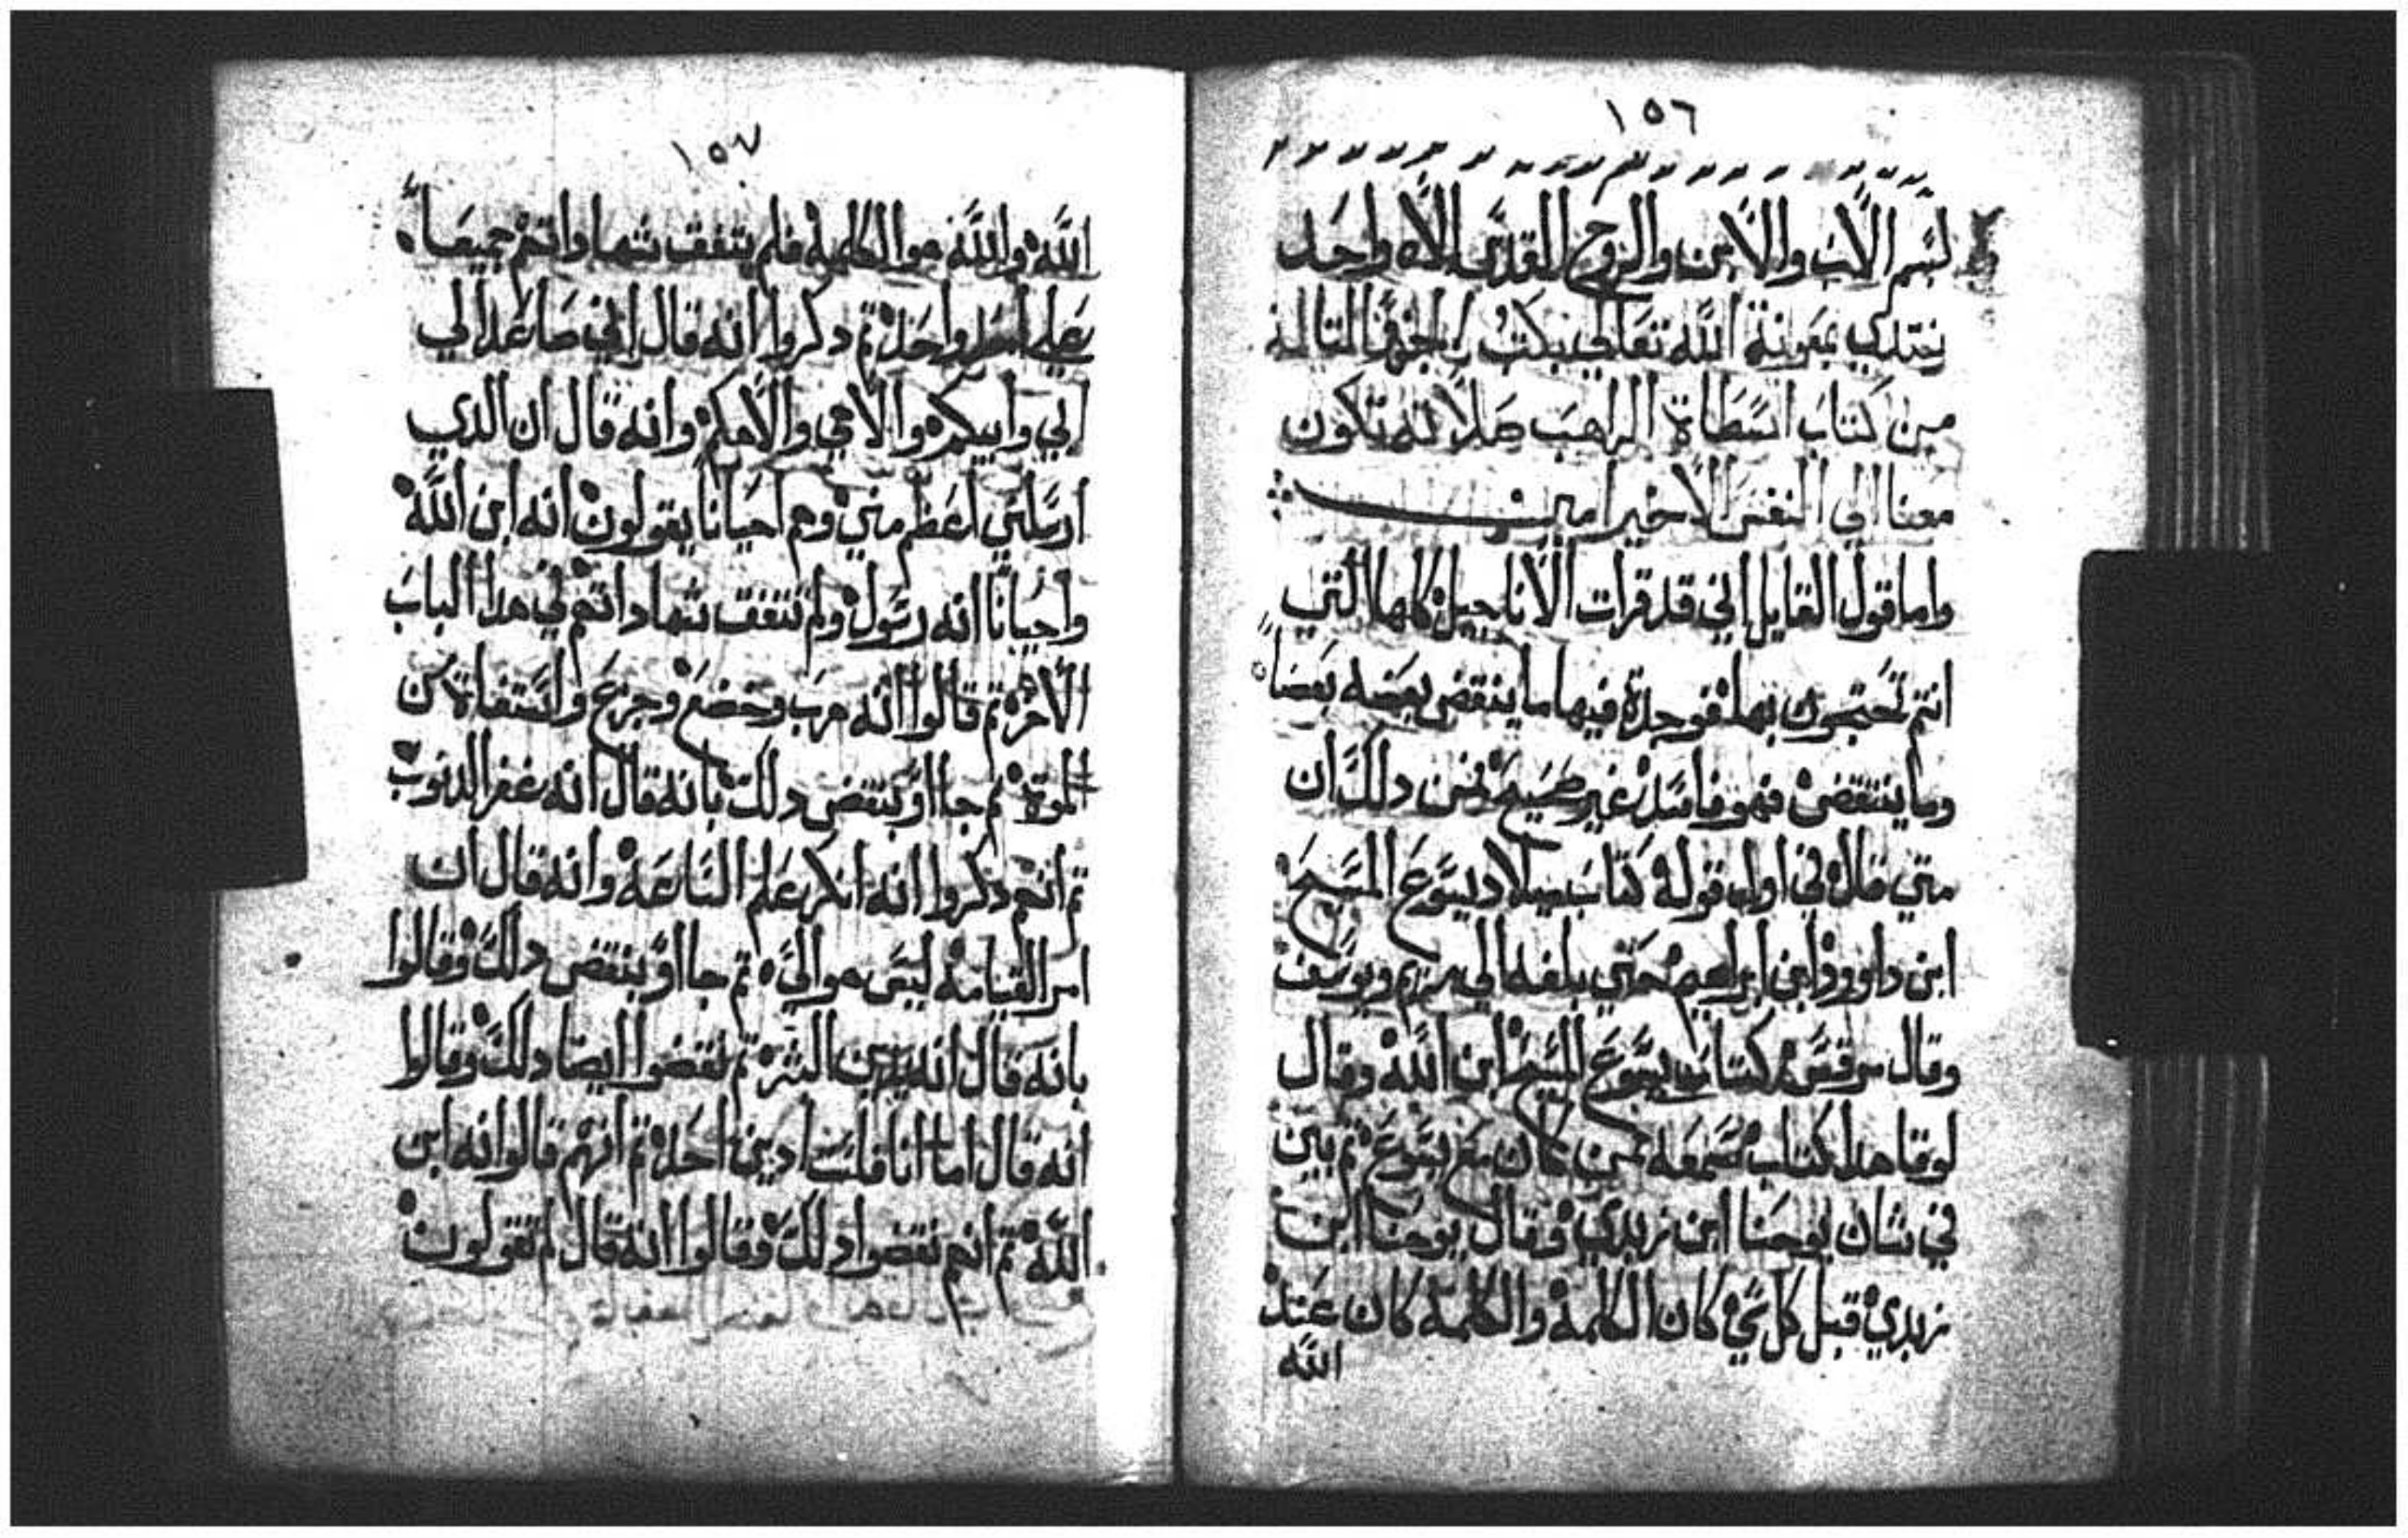 ١٥٦
بسم الاب والابن والروح القدس الاه واحد
نبتدي بمعونة الله تعالى بكتب الجزو التالت
من كتاب اسطاة الراهب صلاته تكون
معنا الي النفس الاخير امين
واما قول القايل اني قد قرات الاناجيل كلها التي
انتم تحتجون بها فوجدة فيها ما ينقض بعضه بعضاً
وما ينتقض فهو فاسد غير صحيح فمن دالك ان
متي قال في اول قوله كتاب ميلاد يسوع المسيح
ابن داوود ابن ابراهيم حتي بلغه الي مريم ويوسف
وقال مرقس كتاب يسوع المسيح ابن الله وقال
لوقا هدا كتاب سمعه ممن كان مع يسوع تم بين
في شان يوحنا ابن زبدي وقال يوحنا ابن
زبدي قبل كل شي كان الكلمة والكلمة كان عند
الله
١٥٧
الله والله هو الكلمة فلم يتفق شهاداتهم جميعاً
علي واحد تم دكروا انه قال اني صاعد الي
ابي وابيكم والاهي والاهكم وانه قال ان الدي
ارسلني اعظم مني وهم احيانا يقولون انه ابن الله
واحيانا انه رسول ولم تتفق شهاداتهم في هدا الباب
الاخر تم قالوا انه هرب وخضع وجزع واستعفاة من
الموة تم جااو بنقض دلك بانه قال انه غفر الدنوب
تم انهم دكروا انه انكر علم الساعة وانه قال ان
امر القيامة ليس هو اليّ تم جااو بنقض دلك وقالوا
بانه قال انه يدين البشر تم نقضوا ايضا دلك وقالوا
انه قال اما انا فلست ادين احد تم انهم قالوا انه ابن
الله تم انهم نقضوا دلك وقالوا انه قال لم تقولون